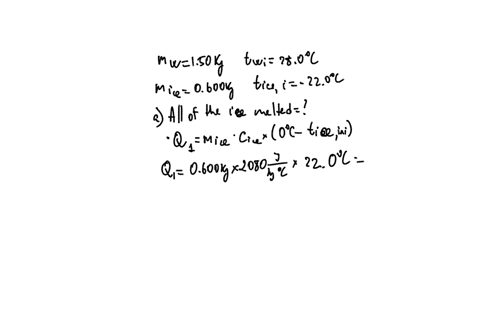 mw=1.50kg twi=28.0°C
mice=0.600kg tice,i=-22.0°C
a) All of the ice melted=?
· Q1=mice·Cice×(0°C-tice,ini)
Q1=0.600kg×2080 J/kg°C × 22.0°C=